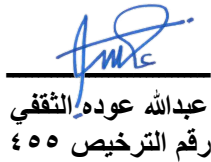 عبدالله عوده الثقفي
رقم الترخيص ٤٥٥